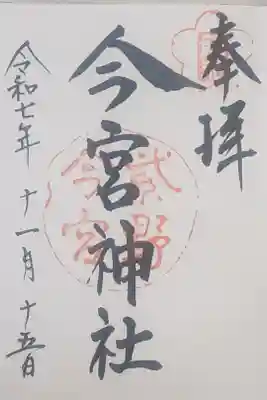 奉拝
今宮神社
令和七年 十一月 十五日